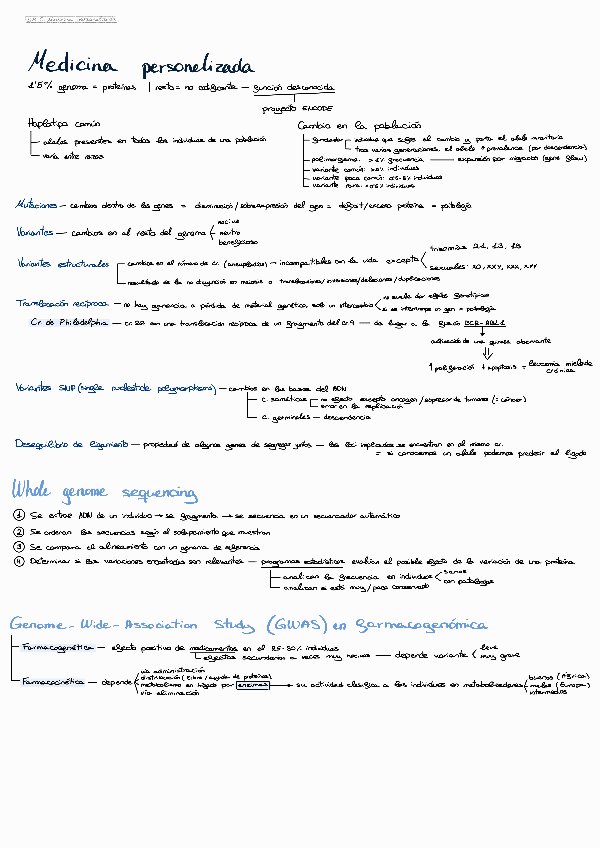 Medicina personalizada
1'5% genoma = proteínas | resto = no codificante — función desconocida
proyecto ENCODE
Haplotipo común
alelos presentes en todos los individuos de una población
varía entre razas
Cambio en la población
fundador
individuo que sufre el cambio y porta el alelo minoritario
tras varias generaciones, el alelo ↑ prevalencia (por descendencia)
polimorfismo: >1% frecuencia — expansión por migración (gene flow)
variante común: >5% individuos
variante poco común: 0'5-5% individuos
variante rara: <0'5% individuos
Mutaciones — cambios dentro de los genes = disminución/sobreexpresión del gen = déficit/exceso proteína = patología
Variantes — cambios en el resto del genoma
nocivo
neutro
beneficioso
Variantes estructurales
cambios en el número de cr. (aneuploidías) → incompatibles con la vida excepto
trisomías 21, 13, 18
sexuales: X0, XXY, XXX, XYY
resultado de la no disyunción en meiosis o translocaciones/inversiones/deleciones/duplicaciones
Translocación recíproca — no hay ganancia o pérdida de material genético, solo un intercambio
no suele dar efectos fenotípicos
si se interrumpe un gen = patología
Cr. de Philadelphia — cr. 22 con una translocación recíproca de un fragmento del cr. 9 — da lugar a la fusión BCR-ABL1
activación de una quinasa aberrante
↑ proliferación ↓ apoptosis = leucemia mieloide crónica
Variantes SNP (single nucleotide polymorphisms) — cambios en las bases del ADN
c. somáticas
no efecto excepto oncogen/supresor de tumores (= cáncer)
error en la replicación
c. germinales — descendencia
Desequilibrio de ligamiento — propiedad de algunos genes de segregar juntos — los loci implicados se encuentran en el mismo cr.
= si conocemos un alelo podemos predecir el ligado
Whole genome sequencing
① Se extrae ADN de un individuo → se fragmenta → se secuencia en un secuenciador automático
② Se ordenan las secuencias según el solapamiento que muestran
③ Se compara el alineamiento con un genoma de referencia
④ Determinar si las variaciones encontradas son relevantes — programas estadísticos evalúan el posible efecto de la variación de una proteína
analizan la frecuencia en individuos
sanos
con patologías
analizan si está muy/poco conservado
Genome-Wide-Association Study (GWAS) en farmacogenómica
Farmacogenética — efecto positivo de medicamentos en el 25-80% individuos
efectos secundarios a veces muy nocivos — depende variante
leve
muy grave
Farmacocinética — depende
vía administración
distribución (libre/unido de proteínas)
metabolismo en hígado por enzimas → su actividad clasifica a los individuos en metabolizadores
vía eliminación
buenos (África)
malos (Europa)
intermedios